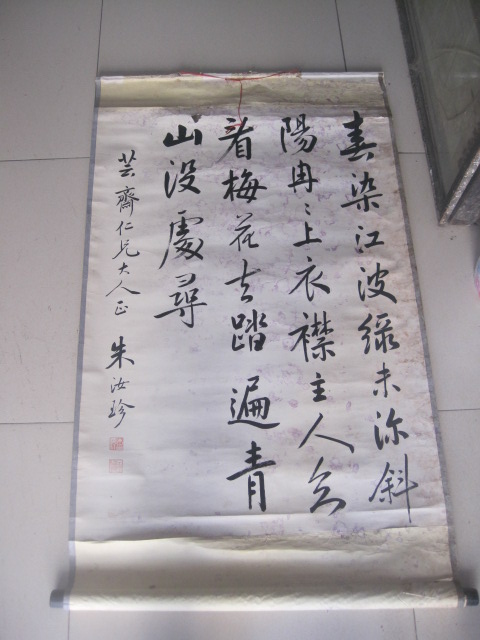 春染江波綠未深斜
陽冉冉上衣襟主人
看梅花去踏遍青
山沒處尋
芸齋仁兄大人正
朱汝珍